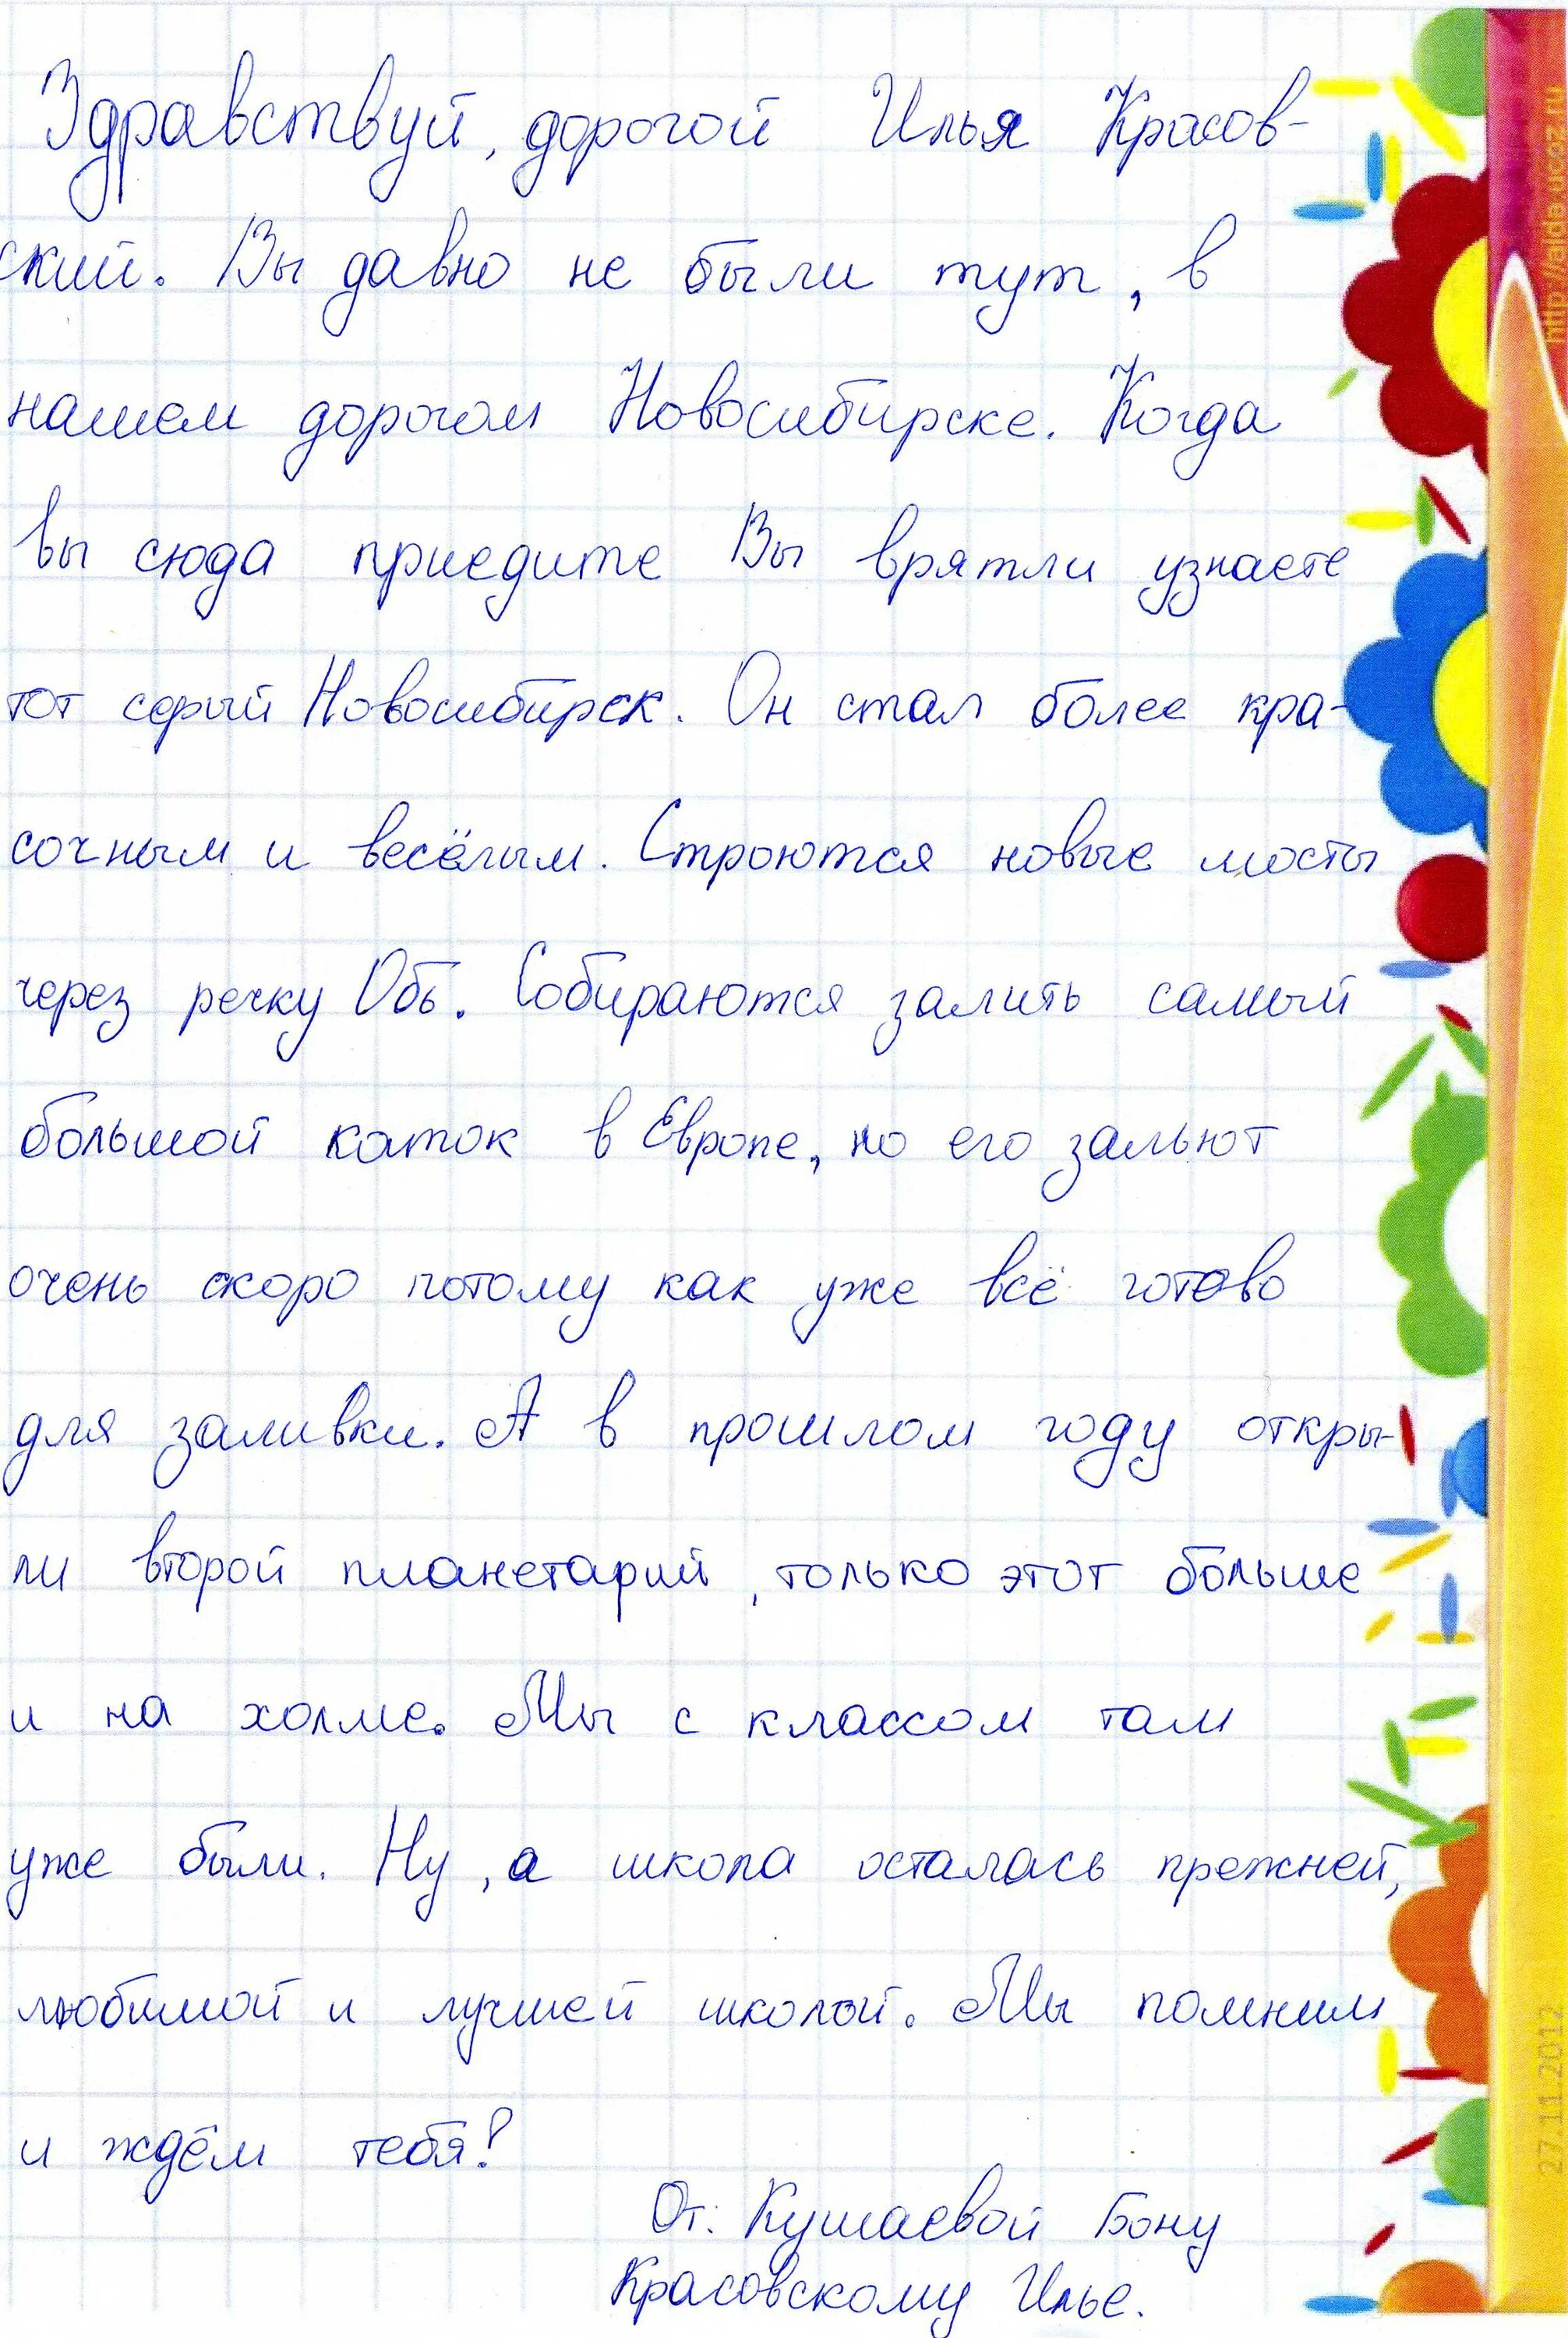 Здравствуй, дорогой Илья Красов-
ский. Вы давно не были тут, в
нашем дорогом Новосибирске. Когда
вы сюда приедите Вы врятли узнаете
тот серый Новосибирск. Он стал более кра-
сочным и весёлым. Строются новые мосты
через речку Обь. Собираются залить самый
большой каток в Европе, но его зальют
очень скоро потому как уже всё готово
для заливки. А в прошлом году откры-
ли второй планетарий, только этот больше
и на холме. Мы с классом там
уже были. Ну, а школа осталась прежней,
любимой и лучшей школой. Мы помним
и ждём тебя!
От: Кушаевой Бону
Красовскому Илье.
http://aida.ucoz.ru
27.11.2012